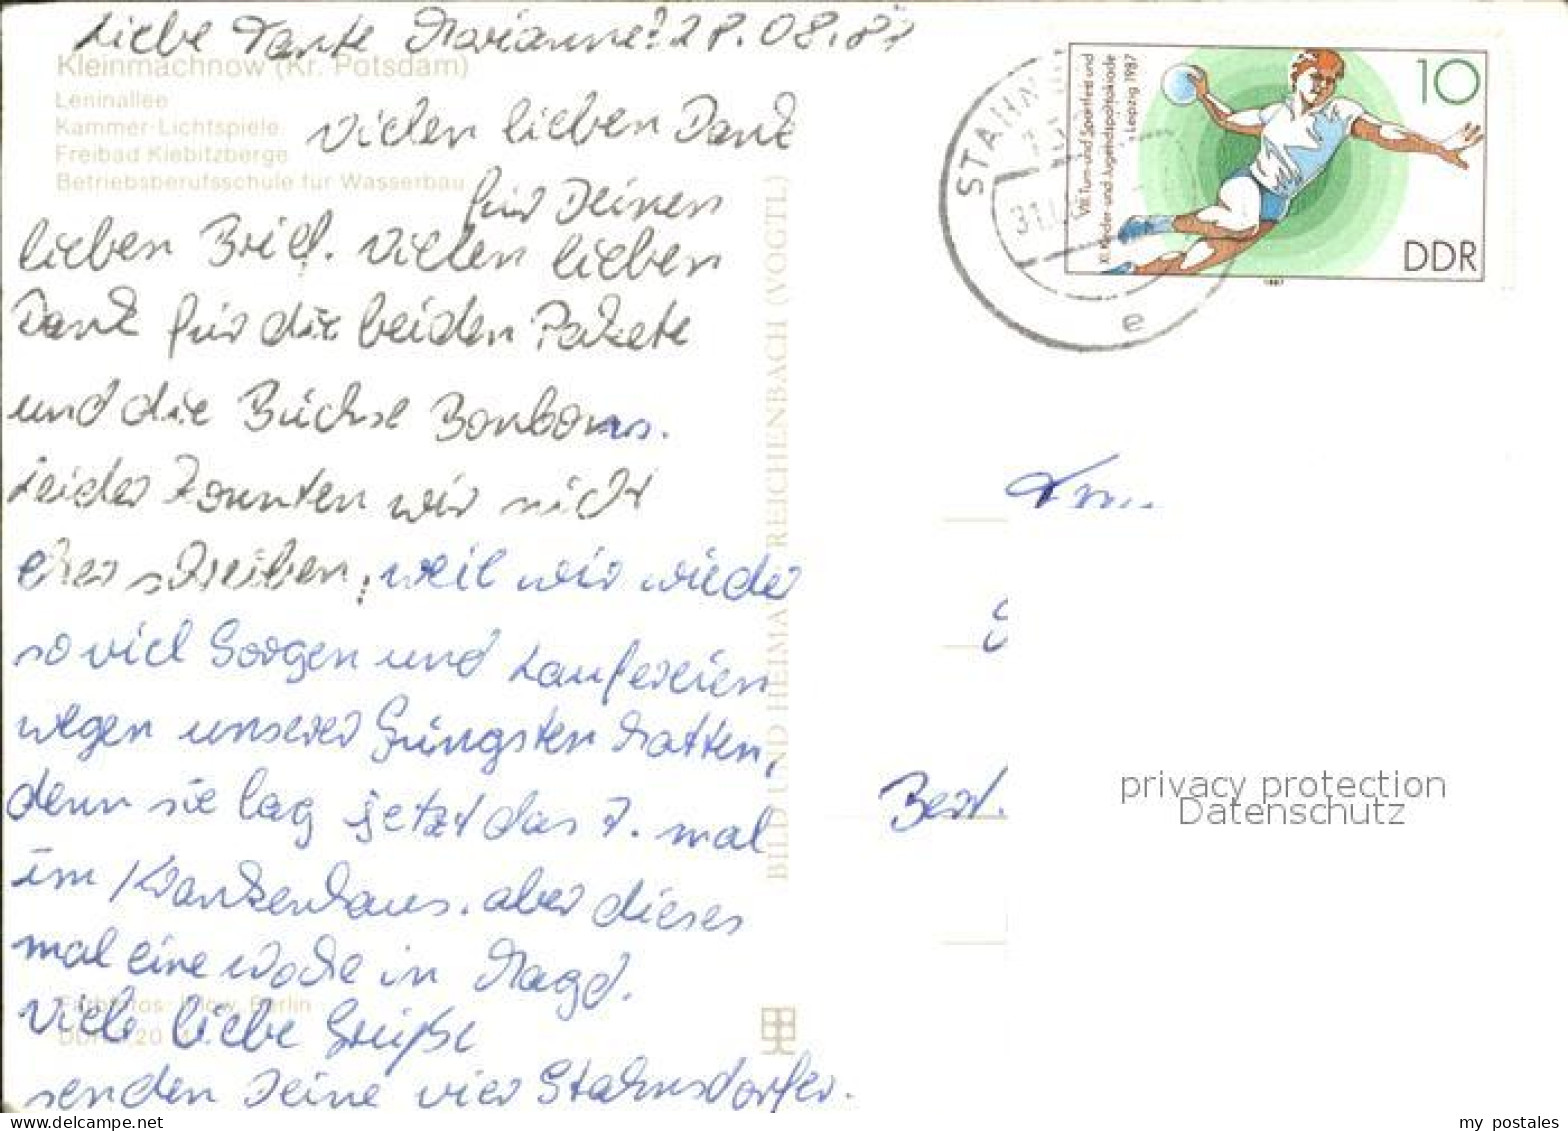 Liebe Tante Marianne! 28.08.87
Kleinmachnow (Kr. Potsdam)
Leninallee
Kammer-Lichtspiele
Freibad Kiebitzberge
Betriebsberufsschule für Wasserbau
Vielen lieben Dank
für Deinen
lieben Brief. Vielen lieben
Dank für die beiden Pakete
und die Büchse Bonbons.
Leider konnten wir nicht
eher schreiben, weil wir wieder
so viel Sorgen und Laufereien
wegen unserer Jüngsten hatten,
denn sie lag jetzt das 7. mal
im Krankenhaus. aber dieses
mal eine Woche in Magd.
Viele liebe Grüße
senden Deine vier Stahnsdorfer.
Farbfotos: Berlin
BILD UND HEIMAT REICHENBACH (VOGTL)
STAHN
31.
e
VIII. Turn- und Sportfest und
XI. Kinder- und Jugendspartakiade
Leipzig 1987
10
DDR
1987
privacy protection
Datenschutz
my postales
www.delcampe.net